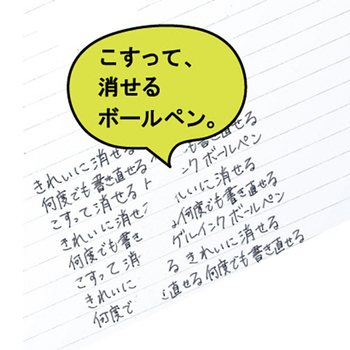 こすって、
消せる
ボールペン。
きれいに消せる
何度でも書き直せる
こすって消せる
きれいに消せ
何度でも書き
こすって消
きれいに
何度で
も書き直せる
ンク ボールペン
れいに消せる
何度でも書き直せる
ゲルインク ボールペン
る きれいに消せる
直せる 何度でも書き直せる